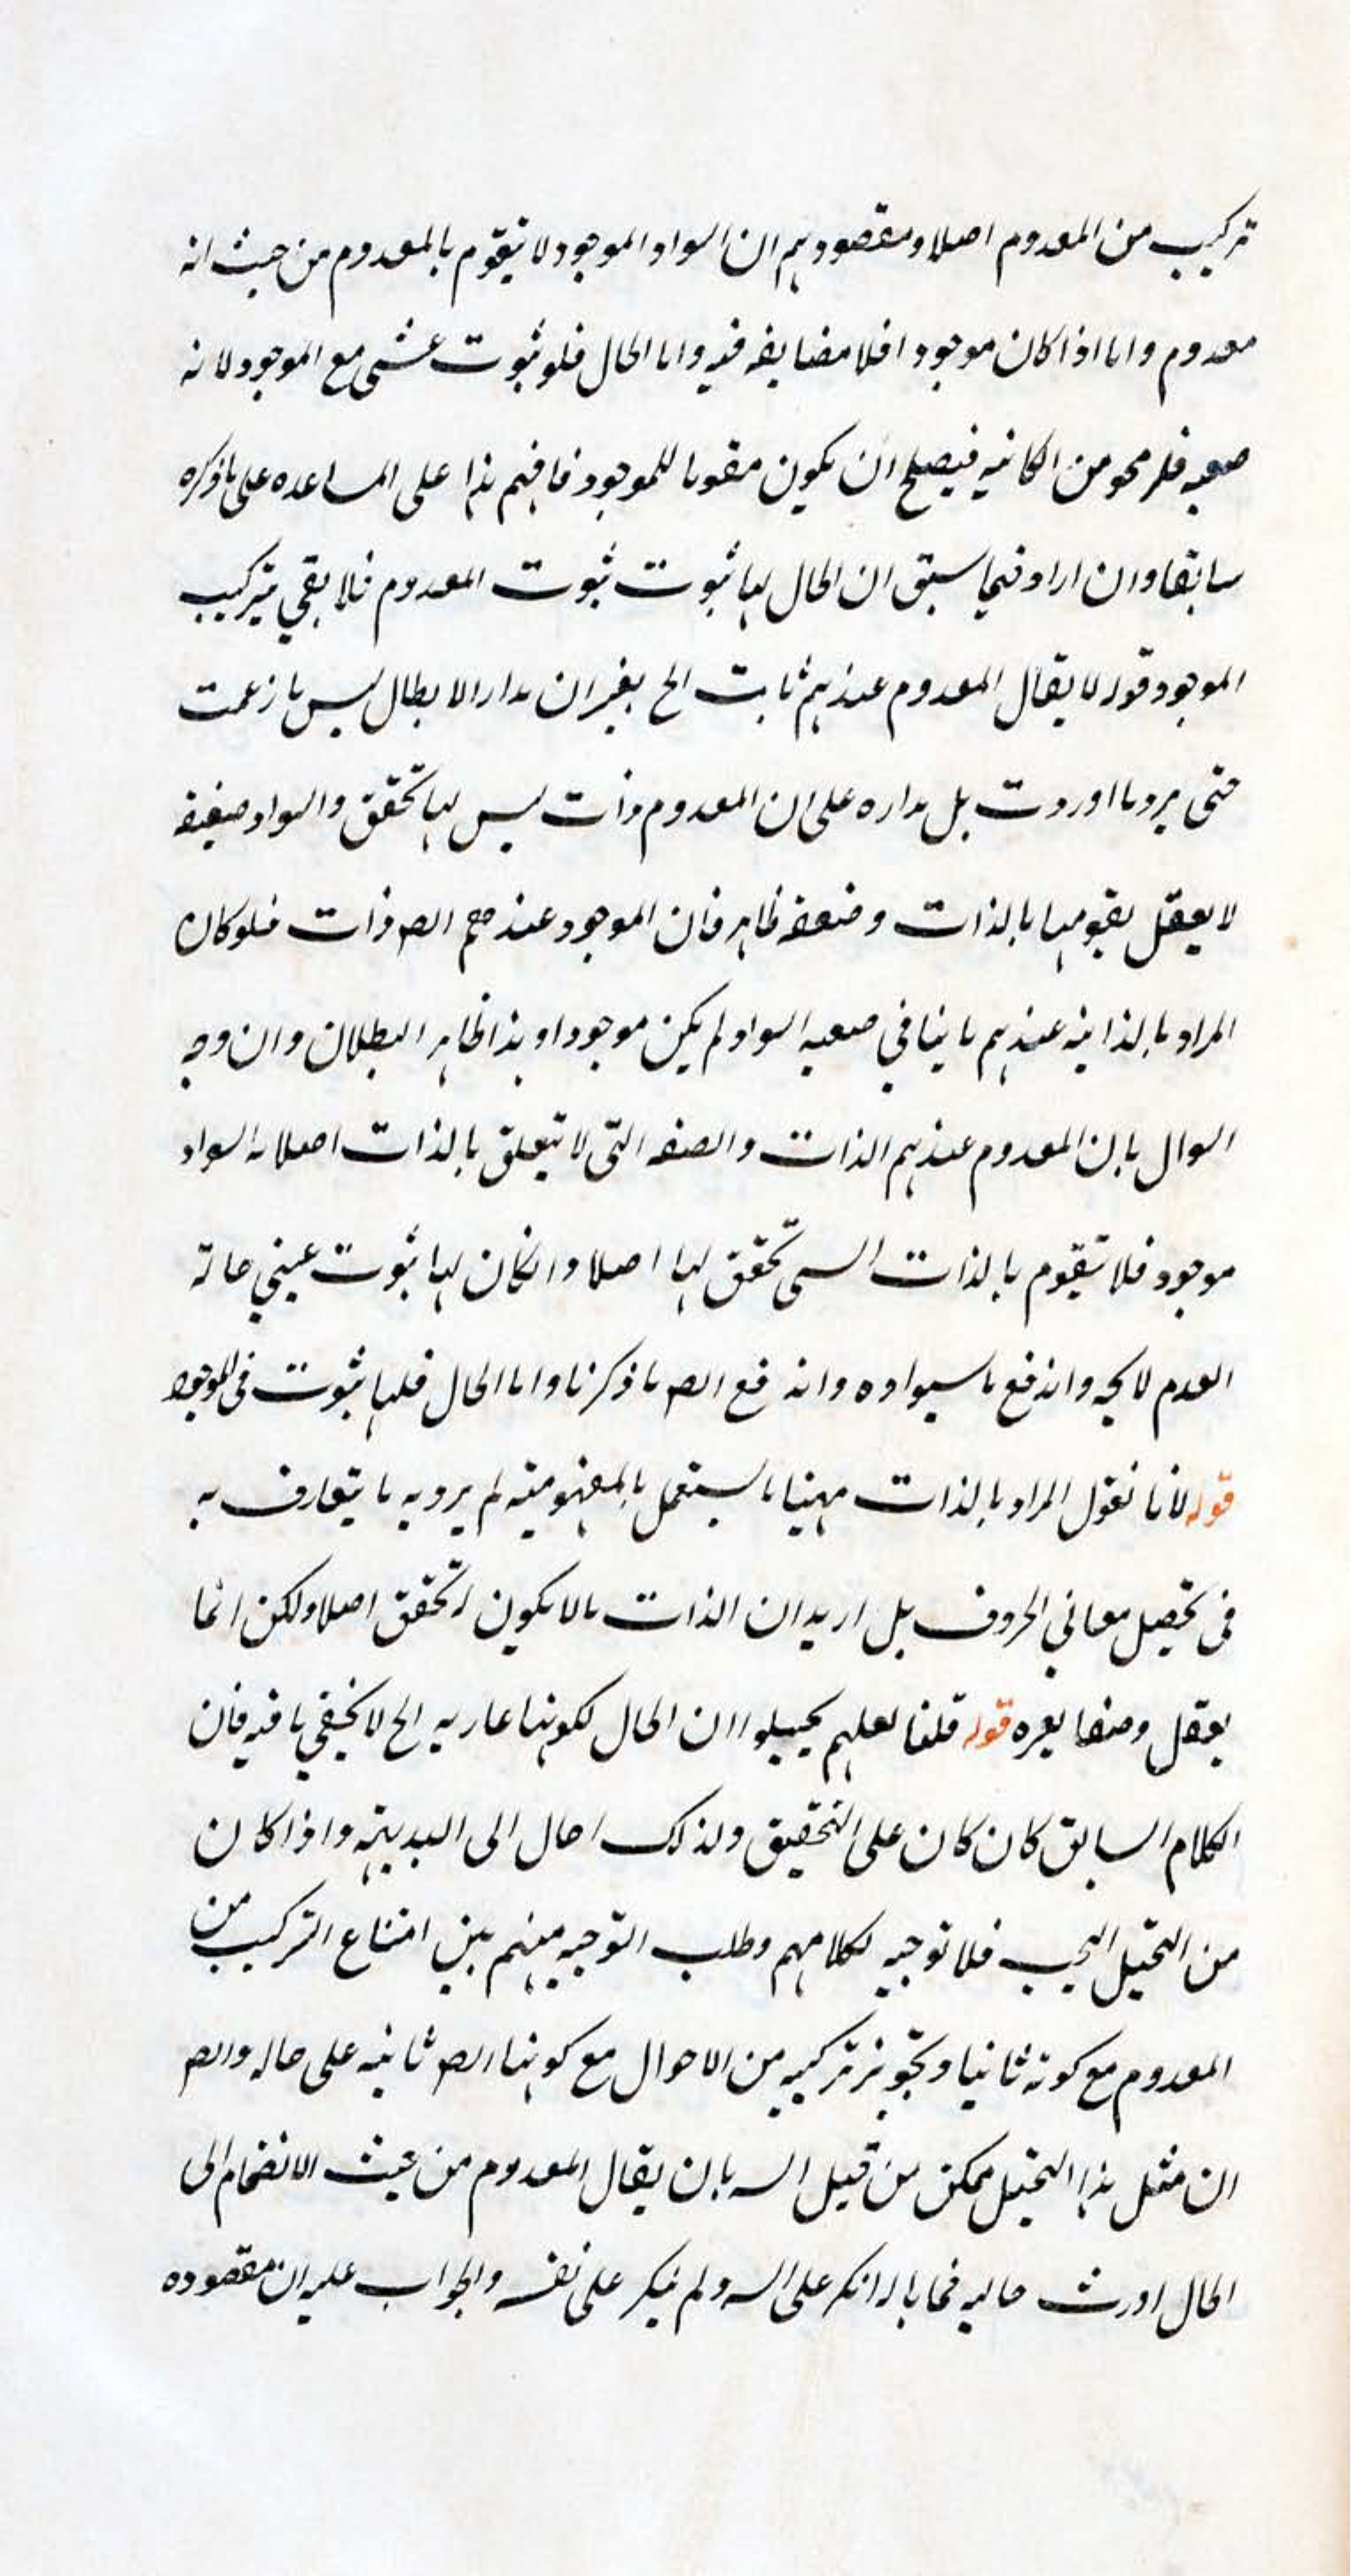 تركيب من المعدوم اصلا ومقصودهم ان السواد الموجود لا يتقوم بالمعدوم من حيث انه
معدوم واما اذا كان موجودا فلا مضايقه فيه واما الحال فلو ثبوت مع الموجود لانه
فيصلح ان يكون مقوما للموجود فافهم هذا على المساعده على ما ذكره
سابقا وان اراد فيما سبق ان الحال لها ثبوت ثبوت المعدوم فلا بقي تركيب
الموجود قوله لا يقال المعدوم عندهم ثابت الخ ان مدار الابطال ليس ما زعمت
حتى يرد ما اوردت بل مداره على ان المعدوم ذات ليس لها تحقق والسواد صفة
لا يعقل تقومها بالذات وضعفه ظاهر فان الموجود عند الص ذات فلو كان
المراد بالذاتيه عندهم ما ينافي السواد لم يكن موجودا وهذا ظاهر البطلان وان وجه
السوال بان المعدوم عندهم الذات والصفه التي لا تتعلق بالذات اصلا السواد
موجود فلا تتقوم بالذات تحقق لها اصلا وانكان لها ثبوت
العدم واندفع ما سيوا ده واندفع الص ما ذكرنا واما الحال فلها ثبوت فى الموجود
قوله لانا نقول المراد بالذات مهنا ما يستقل بالمفهوميته لم يرد به ما يتعارف به
فى تحصيل معاني الحروف بل اريد ان الذات مالا يكون له تحقق اصلا ولكن انما
يعقل وصفا لغيره قوله قلنا لعلهم ان الحال لكونها عاريه الخ لا يخفي ما فيه فان
الكلام السابق كان كان على التحقيق ولذلك احال الى البديهة واذا كان
من التخيل فلا توجيه لكلامهم وطلب التوجيه منهم بين امتناع التركيب من
المعدوم مع كونه ثابتا وتجويز تركيبه من الاحوال مع كونها الص ثابته على حاله والص
ان مثل هذا التخيل ممكن من قبل بان يقال المعدوم من حيث الانضمام الى
الحال اورث حاليه فما باله انكر على ولم ينكر على نفسه والجواب عليه ان مقصوده